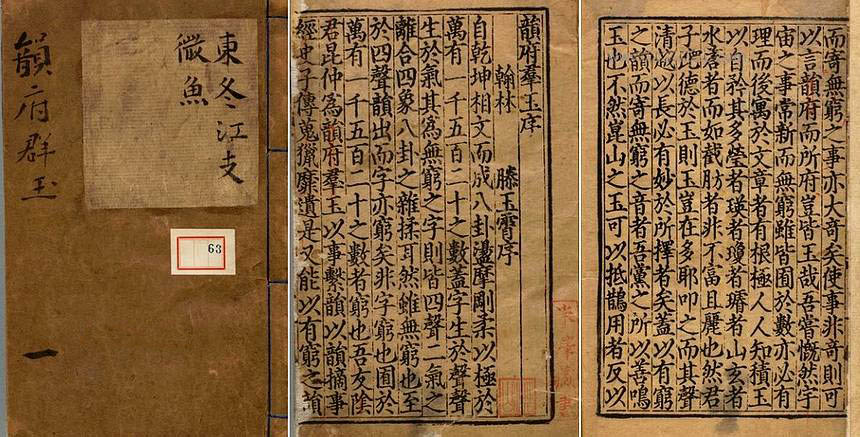 東冬江支
微魚
韻府群玉
一
63
韻府羣玉序
翰林 滕玉霄序
自乾坤相文而成八卦盪摩剛柔以極於
萬有一千五百二十之數蓋字生於聲聲
生於氣其為無窮之字則皆四聲二氣之
離合四象八卦之雜揉耳然雖無窮也至
於四聲韻出而字亦窮矣非字窮也囿於
萬有一千五百二十之數者窮也吾友陰
君昆仲為韻府羣玉以事繫韻以韻摘事
經史子傳蒐獵靡遺是又能以有窮之韻
而寄無窮之事亦大奇矣使事非奇則可
以言韻府而所府豈皆玉哉吾嘗慨然宇
宙之事常新而無窮雖皆囿於數亦必有
理而後寓於文章者有根極人人知積玉
以自矜其多瑩者瑛者瓊者者山玄者
水蒼者而如截肪者非不富且麗也然君
子比德於玉則玉豈在多耶叩之而其聲
清越以長必有妙於所擇者矣蓋以有窮
之韻而寄無窮之音者吾黨之所以善鳴
玉也不然崑山之玉可以抵鵲用者反以